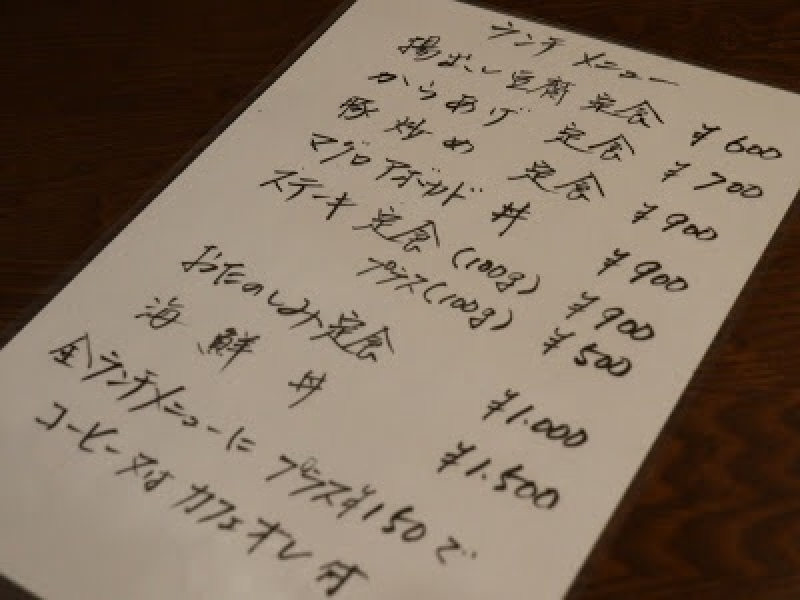 ランチメニュー
揚出し豆腐 定食 ¥600
からあげ 定食 ¥700
豚炒め 定食 ¥900
マグロアボカド 丼 ¥900
ステーキ 定食(100g) ¥900
プラス(100g) ¥500
おたのしみ定食 ¥1.000
海鮮丼 ¥1.500
全ランチメニューに プラス¥150で
コーヒー又は カフェオレ 付